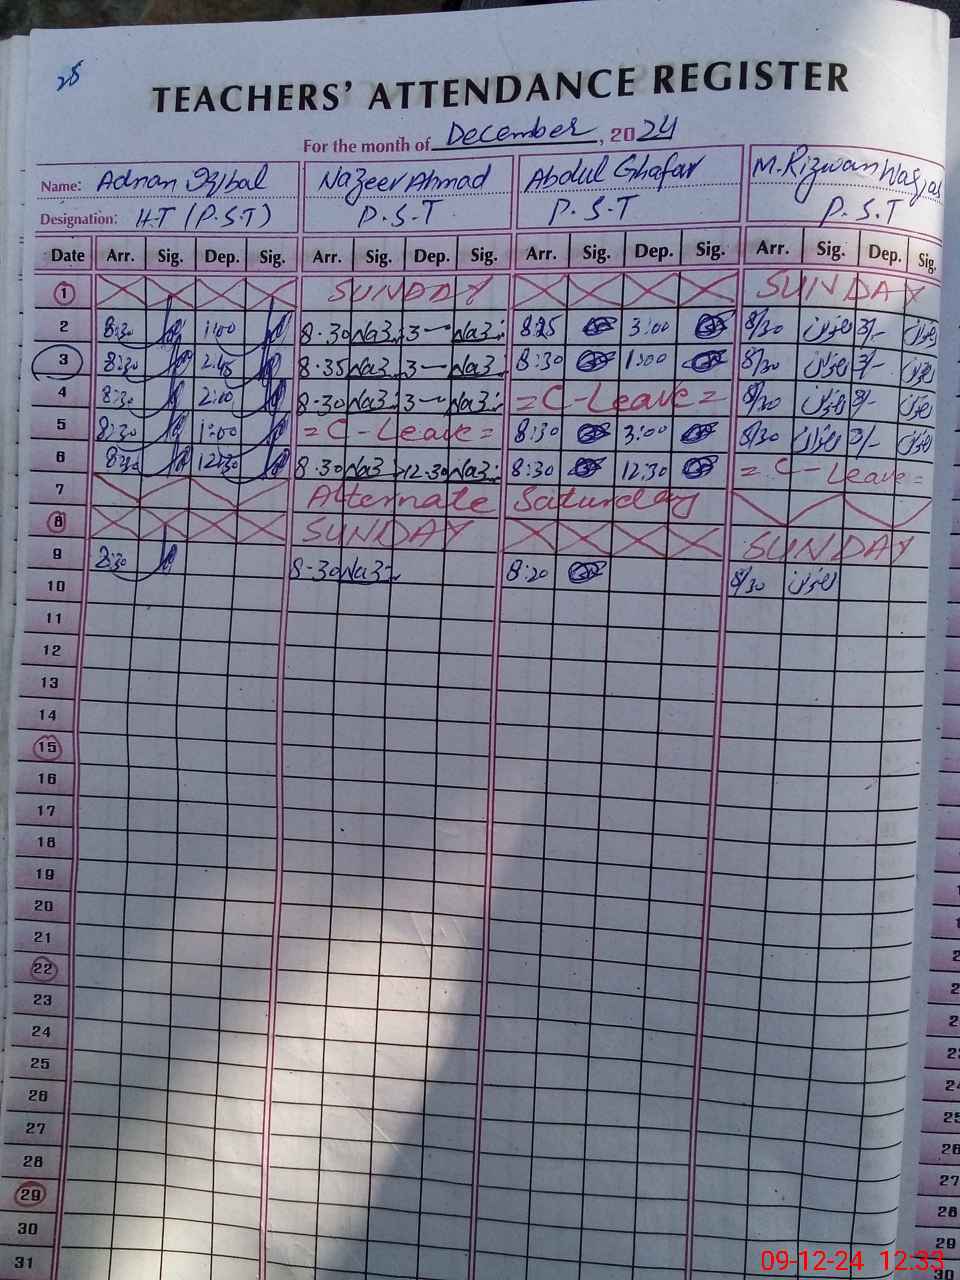 25
TEACHERS' ATTENDANCE REGISTER
For the month of December, 2024
Name: Adnan Iqbal Nazeer Ahmad Abdul Ghafar M. Rizwan
Designation: H.T (P.S.T) P.S.T P.S.T P.S.T
Date Arr. Sig. Dep. Sig. Arr. Sig. Dep. Sig. Arr. Sig. Dep. Sig. Arr. Sig. Dep. Sig.
1 SUNDAY SUNDAY
2 8:30 1:00 8.30 Na3 3 Na3 8:25 3:00 8/30 3/-
3 8:30 2:45 8.35 Na3 3 Na3 8:30 1:00 8/30 3/-
4 8:30 2:00 8.30 Na3 3 Na3 = C-Leave = 8/30 3/-
5 8:30 1:00 = C-Leave = 8:30 3:00 8/30 3/-
6 8:30 12:30 8.30 Na3 12.30 Na3 8:30 12:30 = C-Leave =
7 Alternate Saturday
8 SUNDAY SUNDAY
9 8:30 8.30 Na3 8:20 8/30
10
11
12
13
14
15
16
17
18
19
20
21
22
23
24
25
26
27
28
29
30
31
09-12-24 12:33